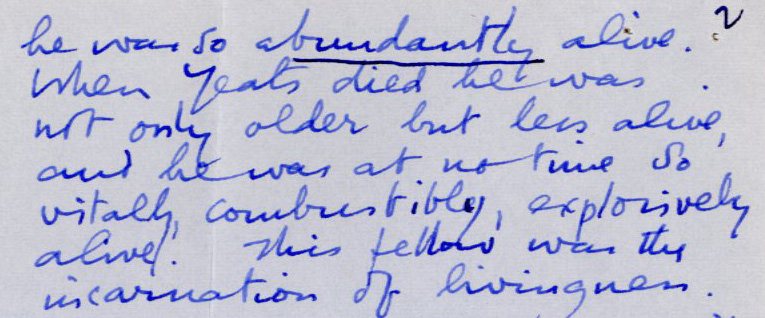 he was so abundantly alive. 2
When Yeats died he was
not only older but less alive,
and he was at no time so
vitally, combustibly, explosively
alive. This fellow was the
incarnation of livingness.